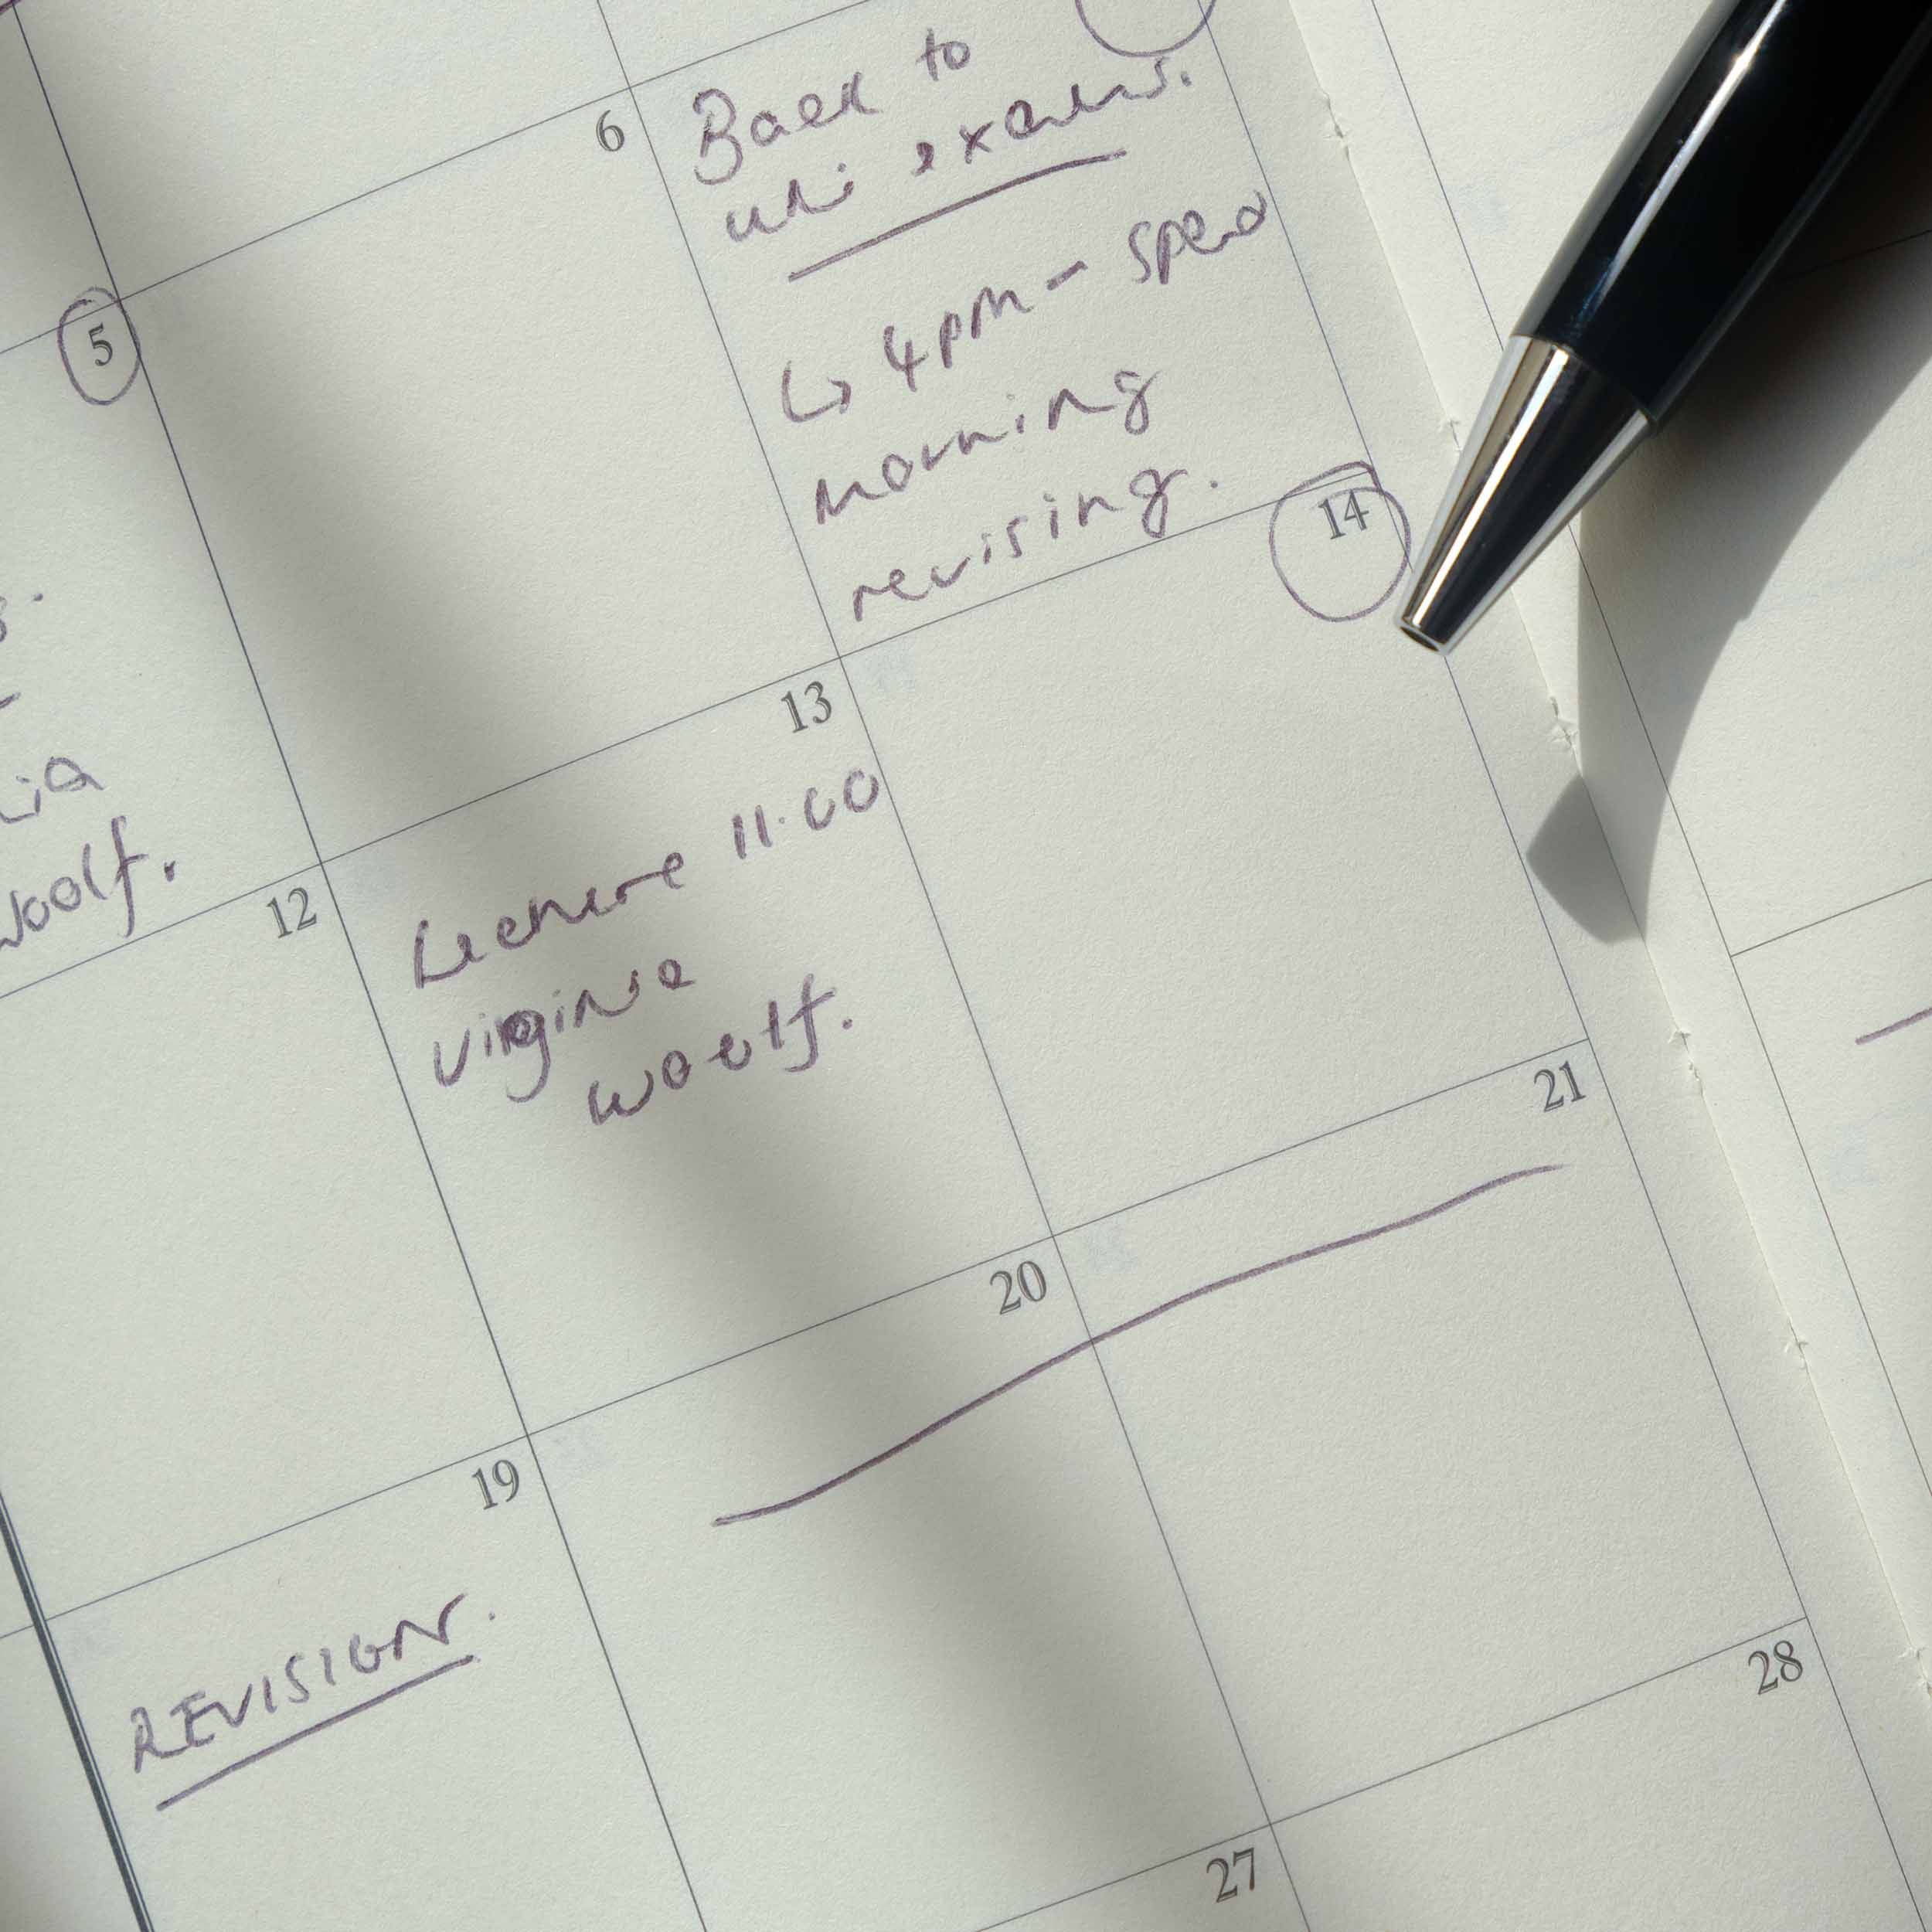 6
Back to
uni exams.
5
↳ 4pm - spend
morning
revising.
14
13
Lecture 11.00
Virginia
Woolf.
12
woolf.
21
20
19
REVISION.
28
27